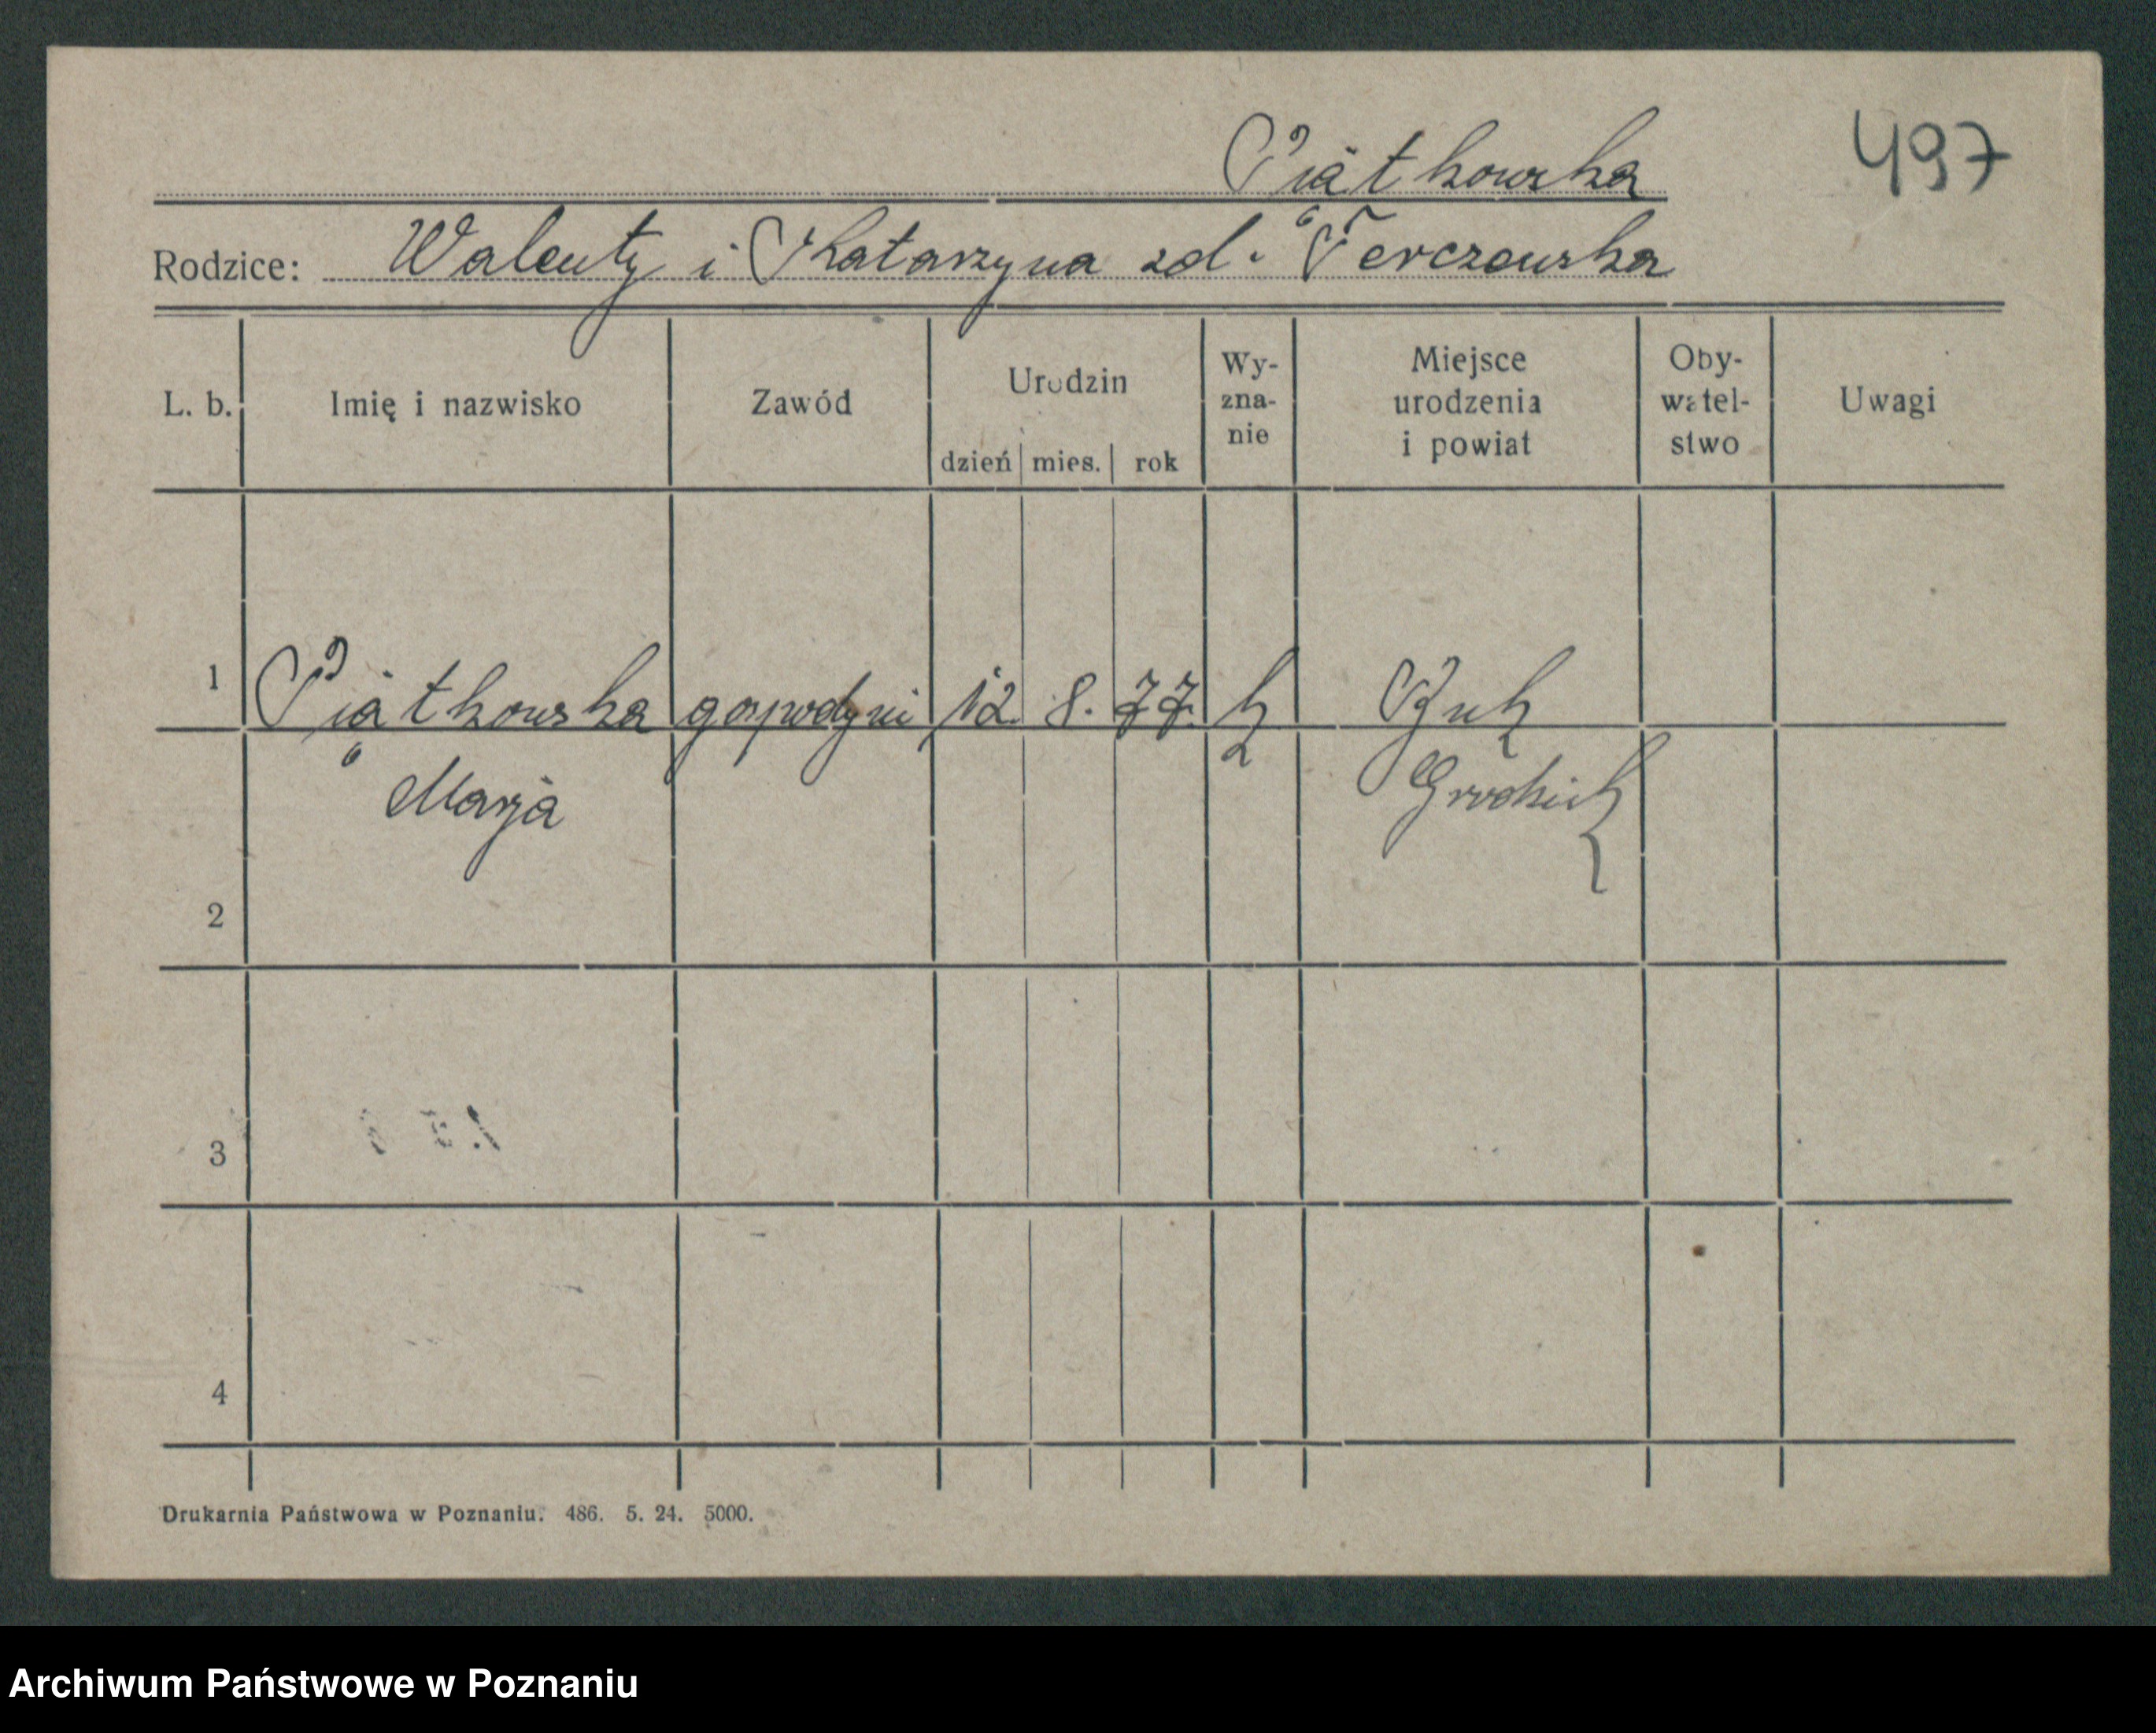 Piątkowska
497
Rodzice: Walenty i Katarzyna zd. Terczewska
L. b. Imię i nazwisko Zawód Urodzin dzień mies. rok Wy-zna-nie Miejsce urodzenia i powiat Oby-watel-stwo Uwagi
1 Piątkowska gospodyni 12. 8. 77. k Buk
Marja Grodzisk
2
3
4
Drukarnia Państwowa w Poznaniu. 486. 5. 24. 5000.
Archiwum Państwowe w Poznaniu